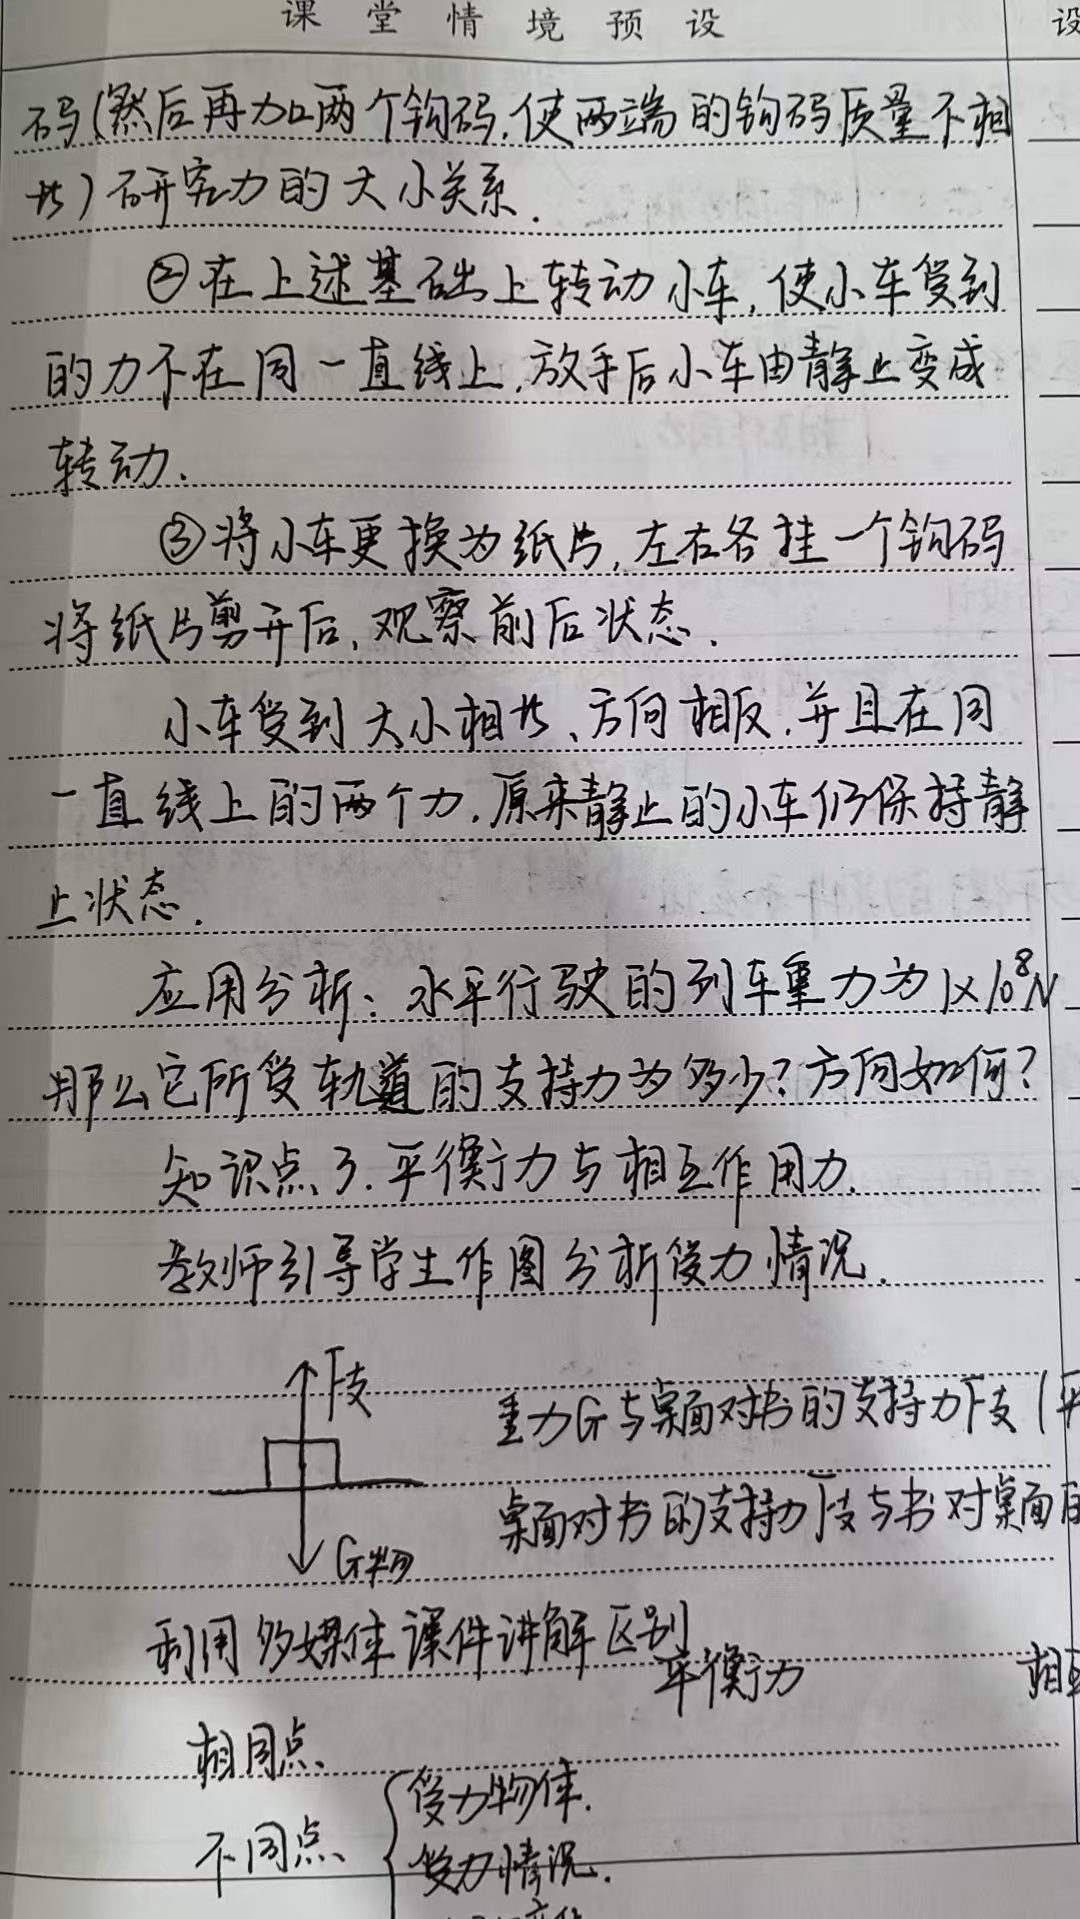 课堂情境预设
设
码(然后再加两个钩码,使两端的钩码质量不相
等)研究力的大小关系.
②在上述基础上转动小车,使小车受到
的力不在同一直线上,放手后小车由静止变成
转动.
③将小车更换为纸片,左右各挂一个钩码
将纸片剪开后,观察前后状态.
小车受到大小相等、方向相反,并且在同
一直线上的两个力,原来静止的小车仍保持静
止状态.
应用分析:水平行驶的列车重力为1×10⁸N
那么它所受轨道的支持力为多少?方向如何?
知识点3.平衡力与相互作用力.
教师引导学生作图分析受力情况.
F支
重力G与桌面对书的支持力F支(平
桌面对书的支持力F支与书对桌面的
G物
利用多媒体课件讲解区别
平衡力 相互
相同点
不同点
受力物体.
受力情况.